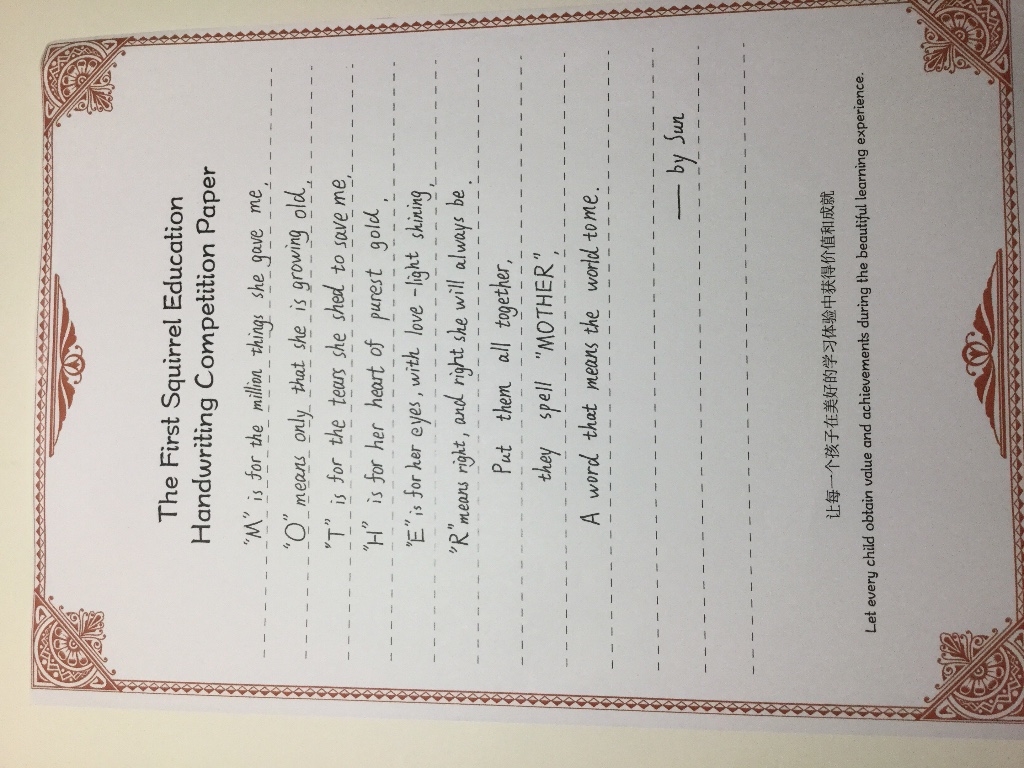 The First Squirrel Education
Handwriting Competition Paper
"M" is for the million things she gave me,
"O" means only that she is growing old,
"T" is for the tears she shed to save me,
"H" is for her heart of purest gold,
"E" is for her eyes, with love-light shining,
"R" means right, and right she will always be.
Put them all together,
they spell "MOTHER",
A word that means the world to me.
— by Sun
让每一个孩子在美好的学习体验中获得价值和成就
Let every child obtain value and achievements during the beautiful learning experience.